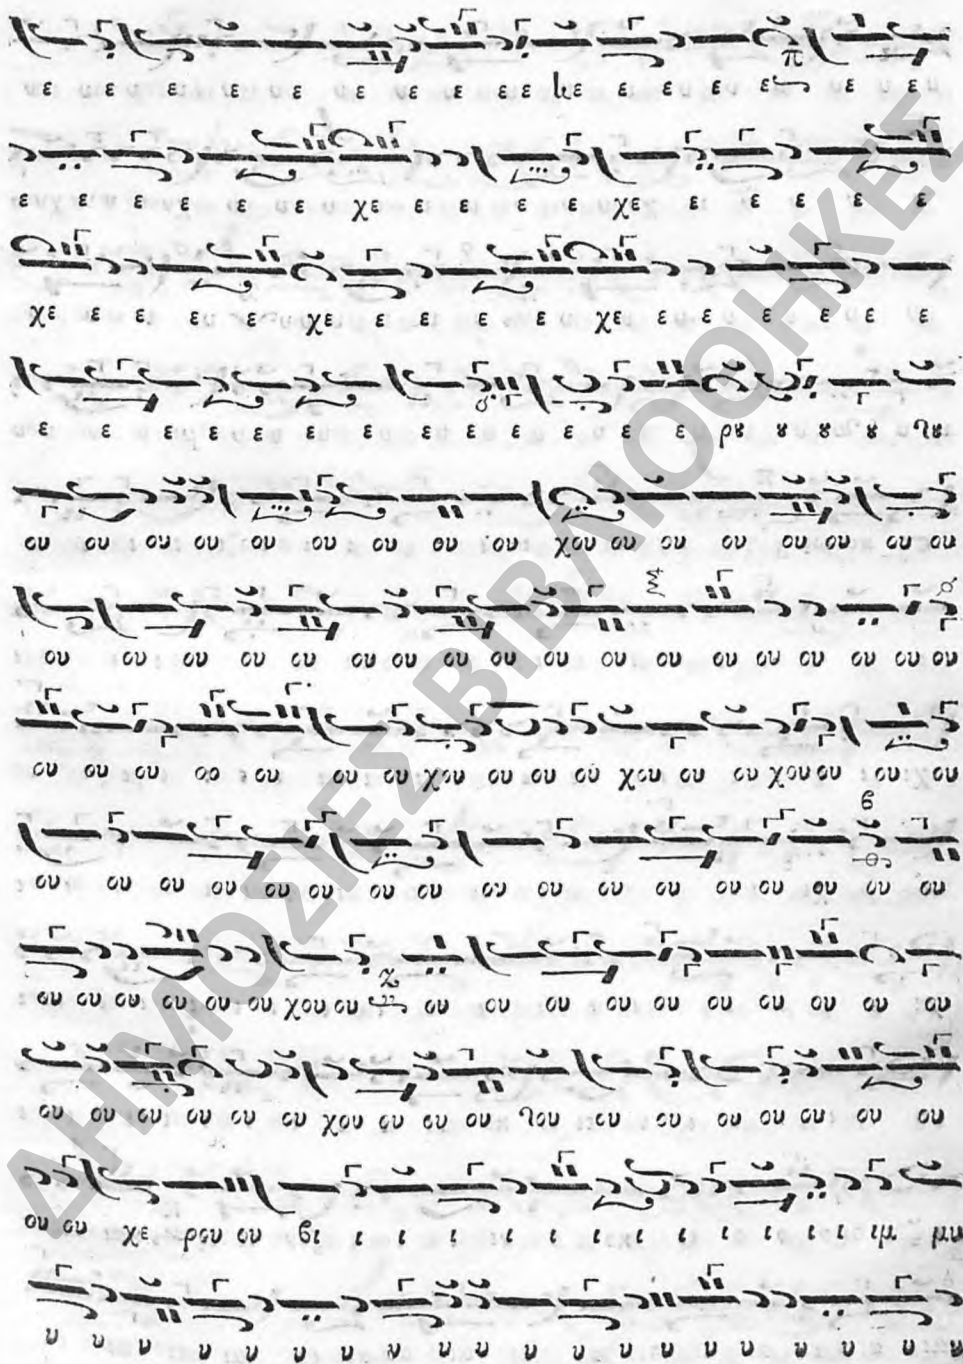 ε ε ε ε ε ε ε ε ε ε χε ε ε ε ε ε ε
ε ε ε ε ε ε χε ε ε ε ε χε ε ε ε ε ε
χε ε ε ε ε χε ε ε ε ε χε ε ε ε ε ε ε
ε ε ε ε ε ε ε ε ε ε ε ε ε ρȣ ȣ ȣ ȣ
ου ου ου ου ου ου ου ου ου χου ου ου ου ου ου ου ου
ου ου ου ου ου ου ου ου ου ου ου ου ου ου ου ου ου ου
ου ου ου ου ου ου ου χου ου ου ου χου ου ου χου ου ου ου
ου ου ου ου ου ου ου ου ου ου ου ου ου ου ου
ου ου ου ου ου ου χου ου ου ου ου ου ου ου ου ου ου
ου ου ου ου ου ου χου ου ου ου ου ου ου ου ου ου ου
ου ου χε ρου ου βι ι ι ι ι ι ι ι ι ι ι ι ι ιμ μυ
υ υ υ υ υ υ υ υ υ υ υ υ υ υ υ υ υ υ
ΔΗΜΟΣΙΕΣ ΒΙΒΛΙΟΘΗΚΕΣ